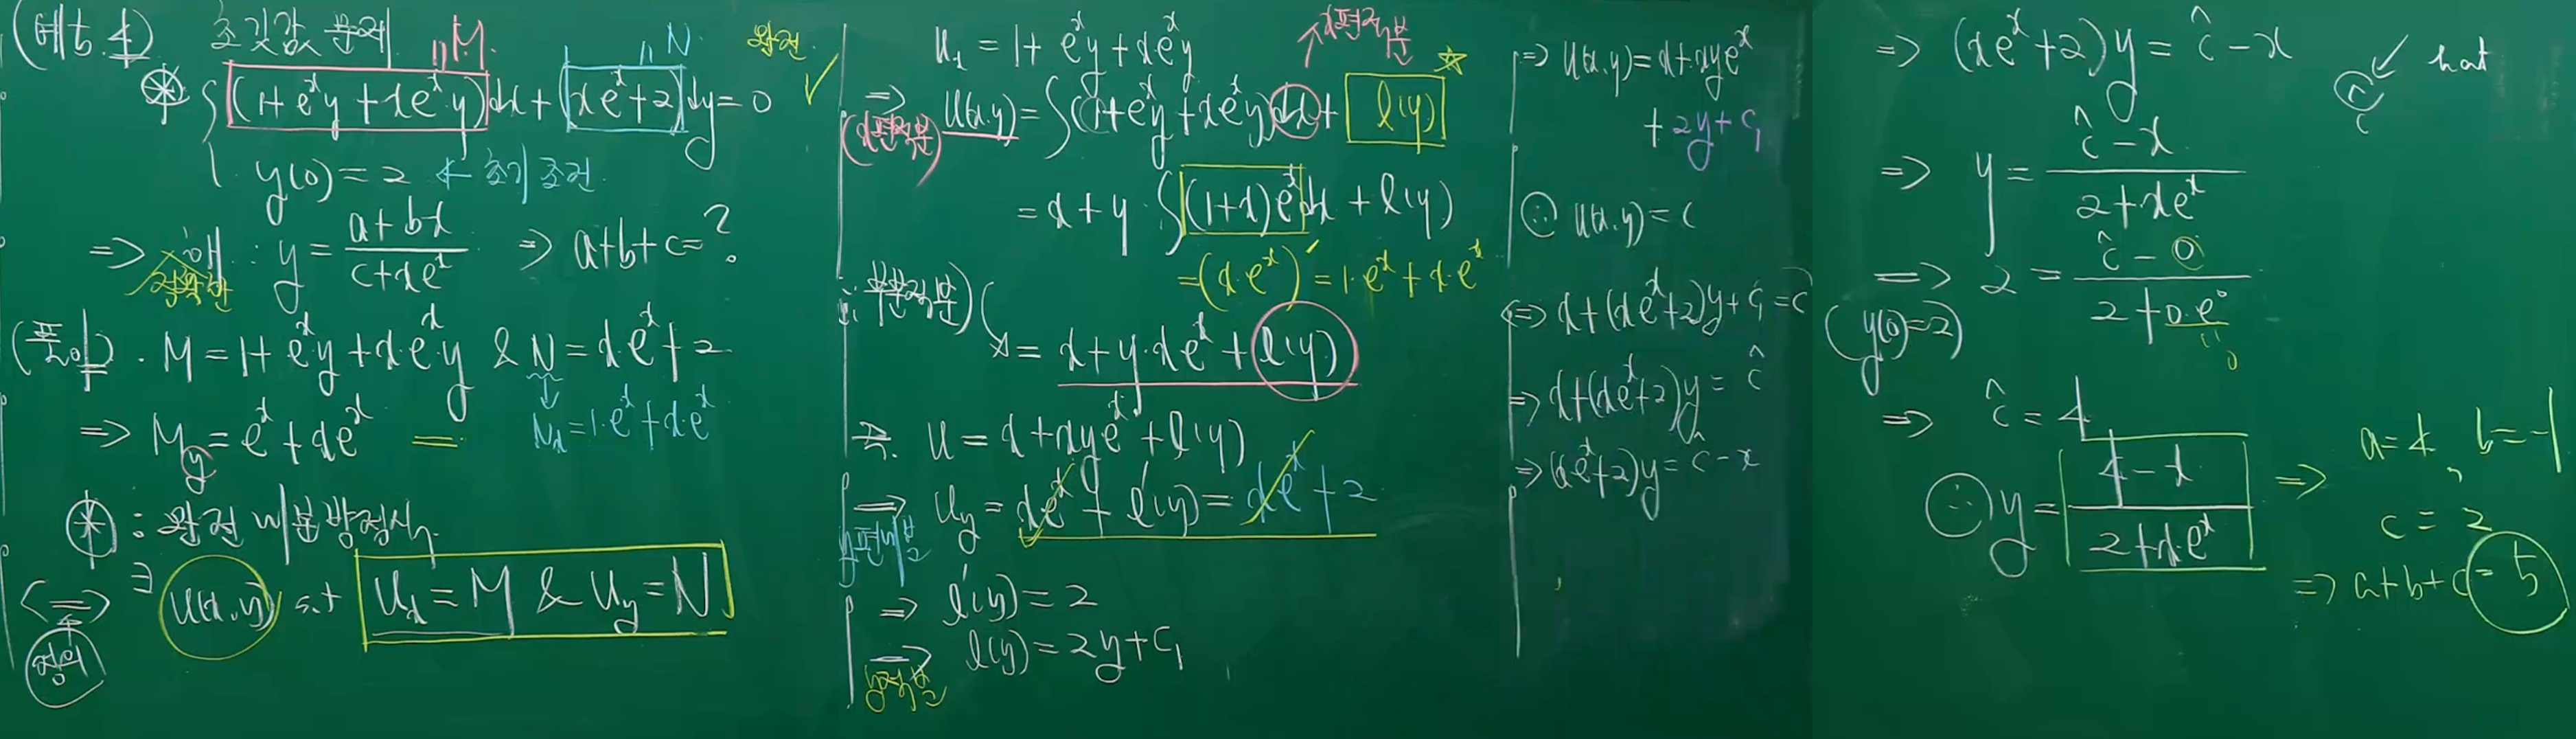 (예b.4) 초깃값 문제 "M. "N. 완전 ✓
⊛ { (1+e^x y+xe^x y)dx+(xe^x+2)dy=0
y(0)=2 ← 초기 조건.
⇒ 해 : y=\frac{a+bx}{c+xe^x} ⇒ a+b+c=?
(풀이). M=1+e^x y+x·e^x·y & N=x·e^x+2
⇒ M_y=e^x+xe^x = N_x=1·e^x+x·e^x
⊛ : 완전 미분방정식.
⇔ ∃ u(x,y) s.t U_x=M & U_y=N
정의
U_x=1+e^x y+xe^x y
⇒ U(x,y)=∫(1+e^x y+xe^x y)dx+ l(y) ☆
=x+y·∫(1+x)e^x dx+l(y)
=(x·e^x)'=1·e^x+x·e^x
∴ 부분적분)
= x+y·xe^x+l(y)
⇒ U=x+xye^x+l(y)
⇒ U_y=xe^x+l'(y)=xe^x+2
y편미분
⇒ l'(y)=2
⇒ l(y)=2y+C_1
y적분
⇒ U(x,y)=x+xye^x
+2y+C_1
∴ U(x,y)=c
⇔ x+(xe^x+2)y+C_1=c
⇒ x+(xe^x+2)y=ĉ
⇒ (xe^x+2)y=ĉ-x
⇒ (xe^x+2)y=ĉ-x ĉ ↙ hat
⇒ y=\frac{ĉ-x}{2+xe^x}
⇒ 2=\frac{ĉ-0}{2+0·e^0}
(y(0)=2) "0
⇒ ĉ=4
∴ y=\frac{4-x}{2+x·e^x} ⇒ a=4, b=-1
c=2
⇒ a+b+c=5